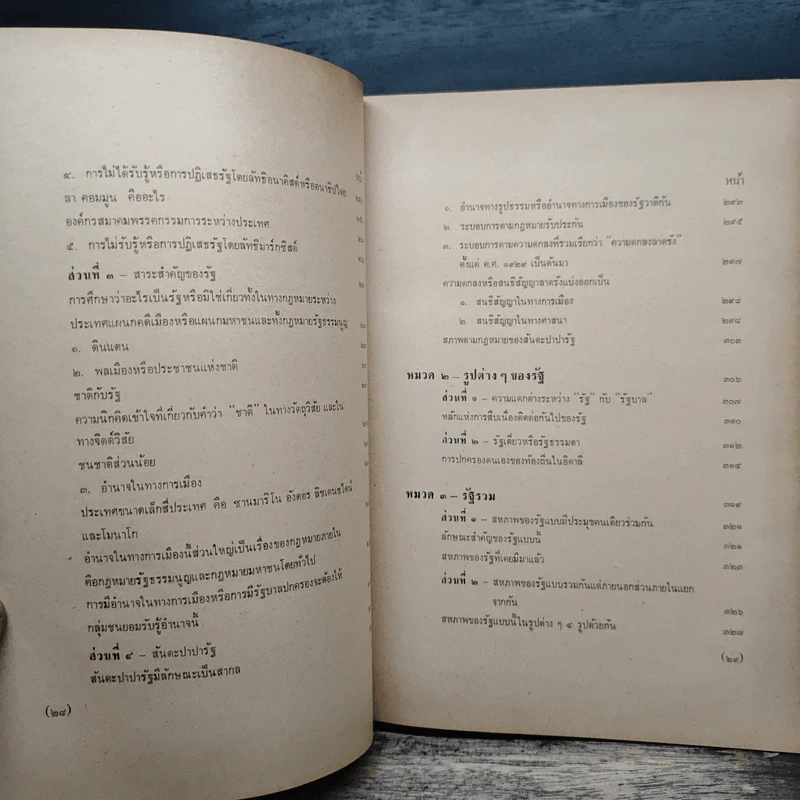 ๔. การไม่ได้รับรู้หรือการปฏิเสธรัฐโดยลัทธิอนาคิสต์หรืออนาธิปไตย
ลา คอมมูน คืออะไร
องค์กรสมาคมพรรคกรรมการระหว่างประเทศ
๕. การไม่รับรู้หรือการปฏิเสธรัฐโดยลัทธิมาร์กซิสต์
ส่วนที่ ๓ – สาระสำคัญของรัฐ
การศึกษาว่าอะไรเป็นรัฐหรือมิใช่เกี่ยวทั้งในทางกฎหมายระหว่าง
ประเทศแผนกคดีเมืองหรือแผนกมหาชนและทั้งกฎหมายรัฐธรรมนูญ
๑. ดินแดน
๒. พลเมืองหรือประชาชนแห่งชาติ
ชาติกับรัฐ
ความนึกคิดเข้าใจที่เกี่ยวกับคำว่า “ชาติ” ในทางวัตถุวิสัย และใน
ทางจิตต์วิสัย
ชนชาติส่วนน้อย
๓. อำนาจในทางการเมือง
ประเทศขนาดเล็กสี่ประเทศ คือ ซานมาริโน อังดอร ลิชเตนชไตน์
และโมนาโก
อำนาจในทางการเมืองนี้ส่วนใหญ่เป็นเรื่องของกฎหมายภายใน
คือกฎหมายรัฐธรรมนูญและกฎหมายมหาชนโดยทั่วไป
การมีอำนาจในทางการเมืองหรือการมีรัฐบาลปกครองจะต้องให้
กลุ่มชนยอมรับรู้อำนาจนี้
ส่วนที่ ๔ – สันตะปาปารัฐ
สันตะปาปารัฐมีลักษณะเป็นสากล
(๒๘)
หน้า
๑. อำนาจทางรูปธรรมหรืออำนาจทางการเมืองของรัฐวาติกัน ๒๙๒
๒. ระบอบการตามกฎหมายรับประกัน ๒๙๕
๓. ระบอบการตามความตกลงที่รวมเรียกว่า “ความตกลงลาตรัง”
ตั้งแต่ ค.ศ. ๑๙๒๙ เป็นต้นมา ๒๙๗
ความตกลงหรือสนธิสัญญาลาตรังแบ่งออกเป็น
๑. สนธิสัญญาในทางการเมือง ๒๙๘
๒. สนธิสัญญาในทางศาสนา ๒๙๘
สภาพตามกฎหมายของสันตะปาปารัฐ ๓๐๓
หมวด ๒ – รูปต่าง ๆ ของรัฐ ๓๐๖
ส่วนที่ ๑ – ความแตกต่างระหว่าง “รัฐ” กับ “รัฐบาล” ๓๐๗
หลักแห่งการสืบเนื่องติดต่อกันไปของรัฐ ๓๑๐
ส่วนที่ ๒ – รัฐเดี่ยวหรือรัฐธรรมดา ๓๑๒
การปกครองตนเองของท้องถิ่นในอิตาลี ๓๑๔
หมวด ๓ – รัฐรวม ๓๑๙
ส่วนที่ ๑ – สหภาพของรัฐแบบมีประมุขคนเดียวร่วมกัน ๓๒๑
ลักษณะสำคัญของรัฐแบบนี้ ๓๒๑
สหภาพของรัฐที่เคยมีมาแล้ว ๓๒๓
ส่วนที่ ๒ – สหภาพของรัฐแบบรวมกันแต่ภายนอกส่วนภายในแยก
จากกัน ๓๒๖
สหภาพของรัฐแบบนี้ในรูปต่าง ๆ ๔ รูปด้วยกัน ๓๒๗
(๒๙)